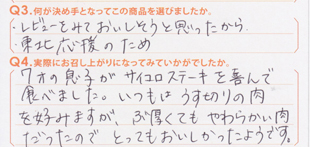 Q3.何が決め手となってこの商品を選びましたか。
・レビューをみておいしそうと思ったから
・東北応援のため
Q4.実際にお召し上がりになってみていかがでしたか。
7才の息子がサイコロステーキを喜んで
食べました。いつもはうす切りの肉
を好みますが、ぶ厚くてもやわらかい肉
だったのでとってもおいしかったようです。